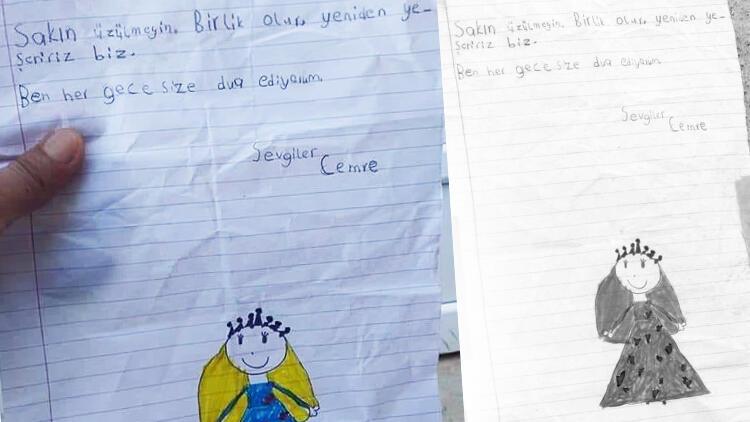 Sakın üzülmeyin. Birlik olur, yeniden ye-
şeririz biz.
Ben her gece size dua ediyorum.
Sevgiler
Cemre
Sakın üzülmeyin. Birlik olur, yeniden ye-
şeririz biz.
Ben her gece size dua ediyorum.
Sevgiler
Cemre